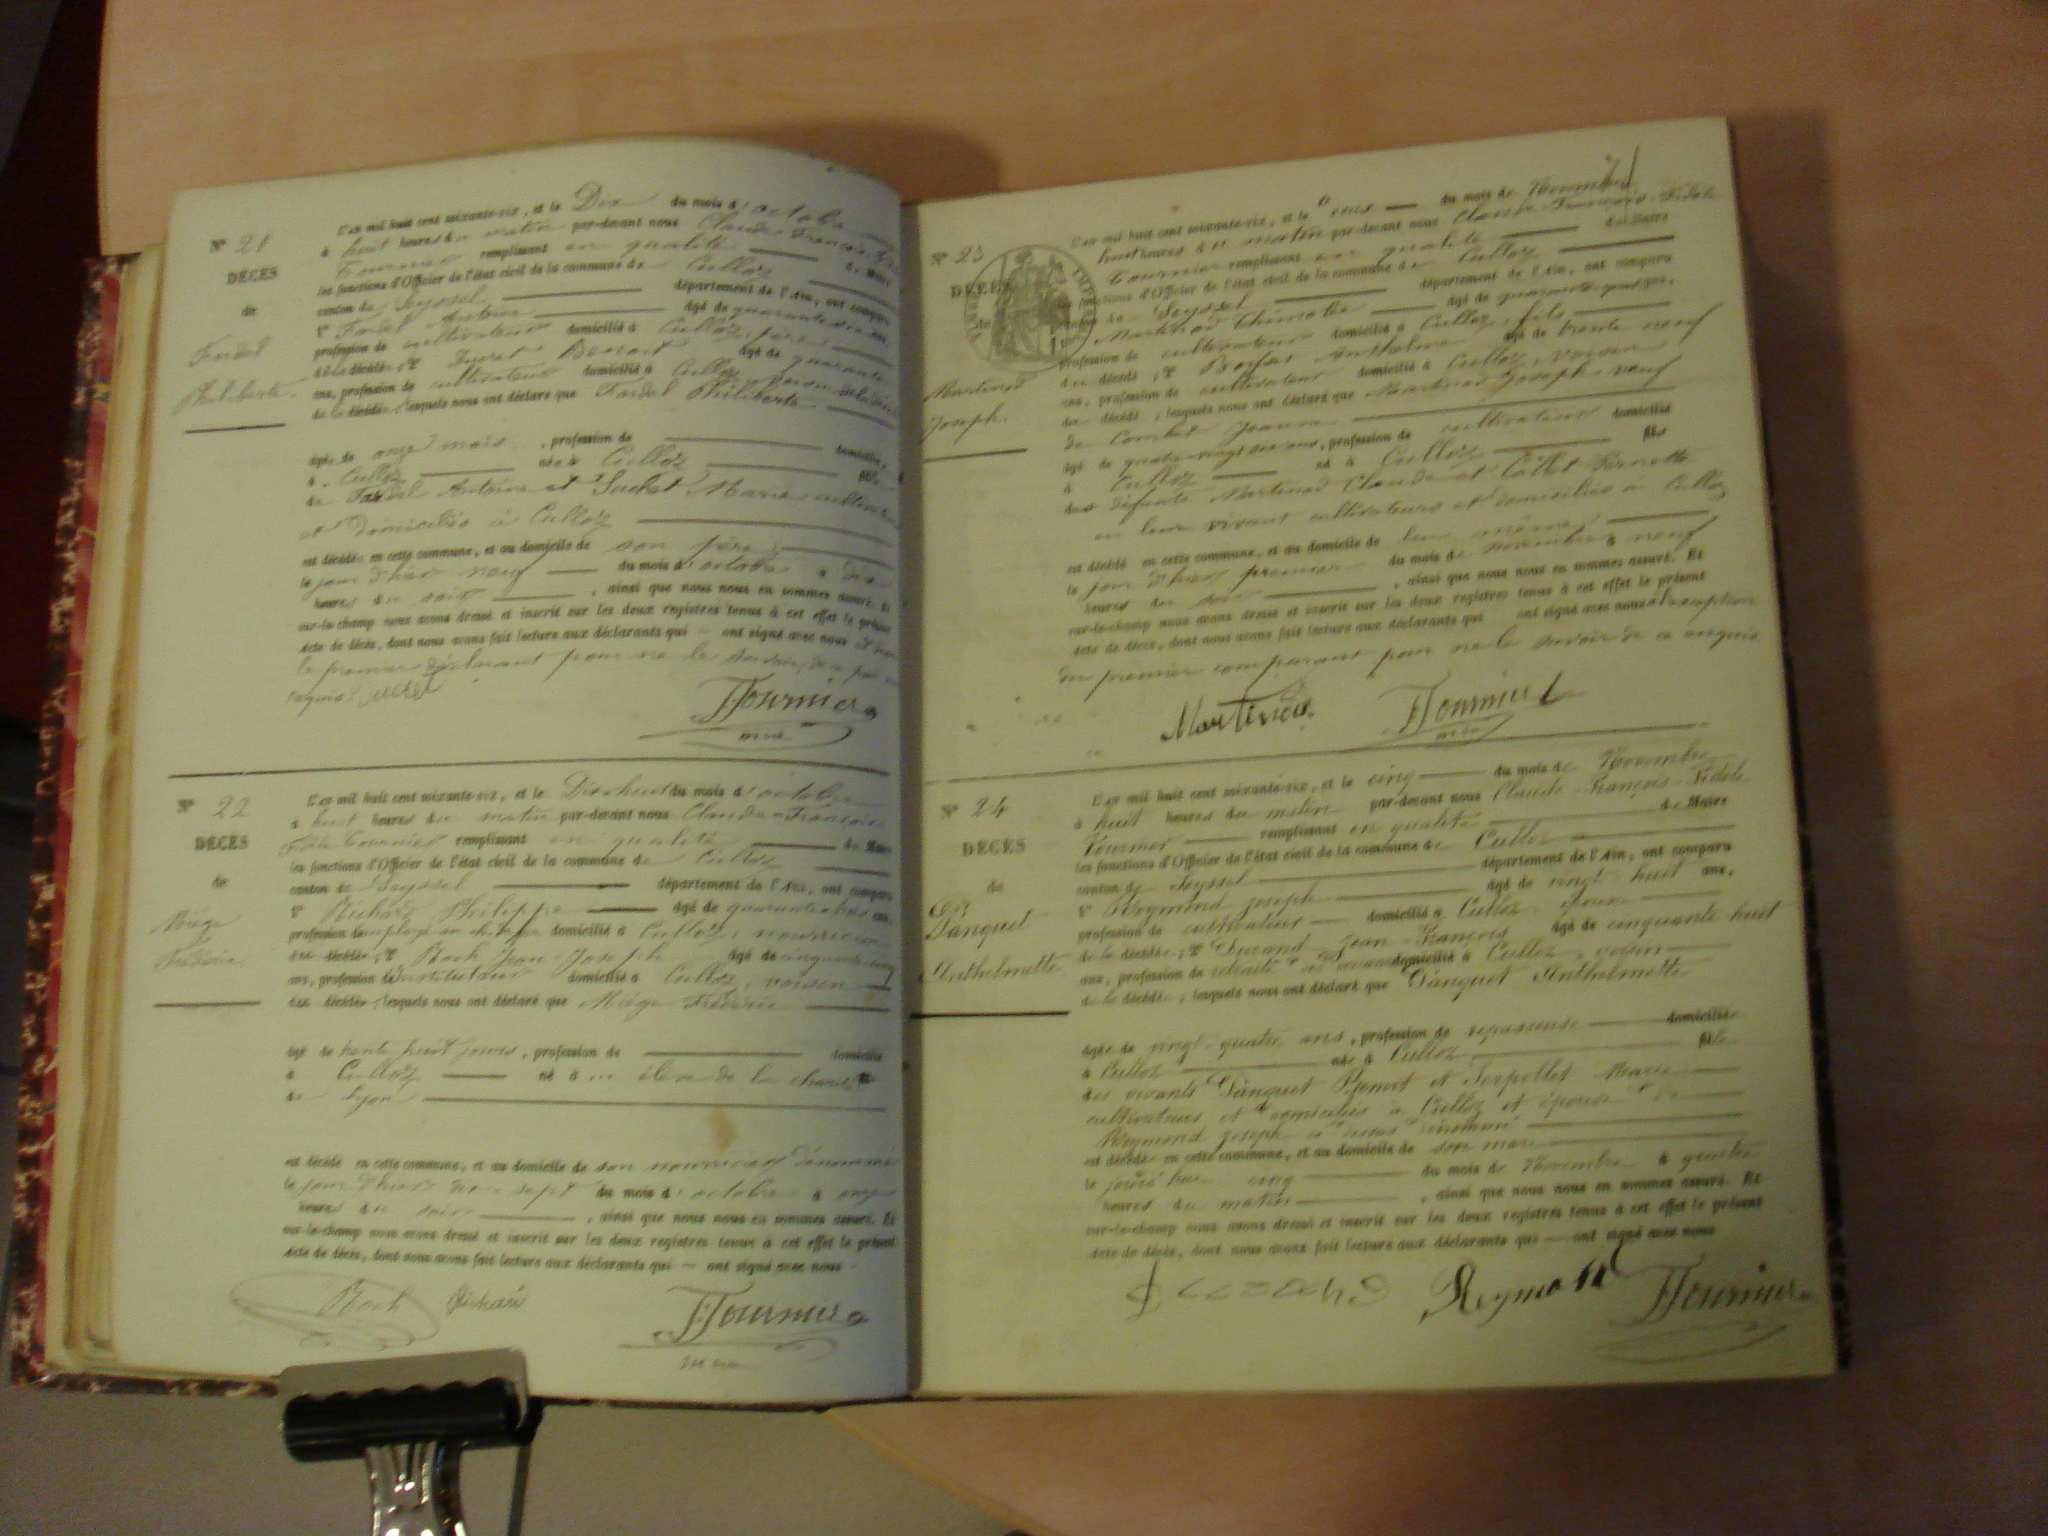 N° 21
DÉCÈS
de
Fardel
Philiberte
L'an mil huit cent soixante-six, et le Dix du mois d'octobre
à huit heures du matin par-devant nous Claude François
Fournier remplissant en qualité de Maire
les fonctions d'Officier de l'état civil de la commune de Culloz
canton de Seyssel département de l'Ain, ont comparu
1° Fardel Antoine âgé de quarante
profession de cultivateur domicilié à Culloz, père
de la décédée ; 2° Benoit âgé de quarante
ans, profession de cultivateur domicilié à Culloz, voisin
de la décédée, lesquels nous ont déclaré que Fardel Philiberte
âgée de onze mois, profession de domiciliée
à Culloz née à Culloz fille
de Fardel Antoine et Suchet Marie
et domiciliés à Culloz
est décédée en cette commune, et au domicile de son père
le jour d'hier neuf du mois d'octobre à dix
heures du soir, ainsi que nous nous en sommes assuré. Et
sur-le-champ nous avons dressé et inscrit sur les deux registres tenus à cet effet le présent
acte de décès, dont nous avons fait lecture aux déclarants qui — ont signé avec nous
le premier déclarant pour ne le savoir, de
requis.
Fournier
maire
N° 22
DÉCÈS
de
Miège
Frédéric
L'an mil huit cent soixante-six, et le Dix huit du mois d'octobre
à huit heures du matin par-devant nous Claude-François
Fidèle Fournier remplissant en qualité de Maire
les fonctions d'Officier de l'état civil de la commune de Culloz
canton de Seyssel département de l'Ain, ont comparu
1° Richard Philippe âgé de quarante trois ans
profession d'employé au chemin domicilié à Culloz, nourricier
du décédé ; 2° Roch Jean-Joseph âgé de cinquante
ans, profession d'instituteur domicilié à Culloz, voisin
du décédé, lesquels nous ont déclaré que Miège Frédéric
âgé de trente huit jours, profession de domicilié
à Culloz né à ... élève de la charité
de Lyon
est décédé en cette commune, et au domicile de son nourricier dénommé
le jour d'hier dix-sept du mois d'octobre à onze
heures du soir, ainsi que nous nous en sommes assuré. Et
sur-le-champ nous avons dressé et inscrit sur les deux registres tenus à cet effet le présent
acte de décès, dont nous avons fait lecture aux déclarants qui — ont signé avec nous
Roch Richard Fournier
maire
N° 23
DÉCÈS
de
Martinod
Joseph.
L'an mil huit cent soixante-six, et le deux du mois de Novembre
à huit heures du matin par-devant nous Claude-François-Fidèle
Fournier remplissant en qualité de Maire
les fonctions d'Officier de l'état civil de la commune de Culloz
canton de Seyssel département de l'Ain, ont comparu
1° Martinod Thimothé âgé de quarante ans,
profession de cultivateur domicilié à Culloz, fils
du décédé ; 2° Anthelme âgé de trente neuf
ans, profession de cultivateur domicilié à Culloz, voisin
du décédé, lesquels nous ont déclaré que Martinod Joseph veuf
de Combet Jeanne
âgé de quatre-vingt ans, profession de cultivateur domicilié
à Culloz né à Culloz fils
des défunts Martinod Claude et Pernette
en leur vivant cultivateurs et domiciliés à Culloz
est décédé en cette commune, et au domicile de
le jour d'hier premier du mois de novembre à neuf
heures du soir, ainsi que nous nous en sommes assuré. Et
sur-le-champ nous avons dressé et inscrit sur les deux registres tenus à cet effet le présent
acte de décès, dont nous avons fait lecture aux déclarants qui ont signé avec nous à l'exception
du premier comparant pour ne le savoir de ce enquis
Martinod Fournier
maire
N° 24
DÉCÈS
de
Danquet
Anthelmette
L'an mil huit cent soixante-six, et le cinq du mois de Novembre
à huit heures du matin par-devant nous Claude-François-Fidèle
Fournier remplissant en qualité de Maire
les fonctions d'Officier de l'état civil de la commune de Culloz
canton de Seyssel département de l'Ain, ont comparu
1° Reymond Joseph âgé de vingt huit ans,
profession de cultivateur domicilié à Culloz époux
de la décédée ; 2° Durand Jean-François âgé de cinquante huit
ans, profession de retraité domicilié à Culloz, voisin
de la décédée, lesquels nous ont déclaré que Danquet Anthelmette
âgée de vingt-quatre ans, profession de repasseuse domiciliée
à Culloz née à Culloz fille
des vivants Danquet Benoit et Serpollet Marie
cultivateurs et domiciliés à Culloz et épouse de
Reymond Joseph ci-dessus dénommé
est décédée en cette commune, et au domicile de son mari
le jourd'hui cinq du mois de Novembre à quatre
heures du matin, ainsi que nous nous en sommes assuré. Et
sur-le-champ nous avons dressé et inscrit sur les deux registres tenus à cet effet le présent
acte de décès, dont nous avons fait lecture aux déclarants qui — ont signé avec nous
Reymond Fournier